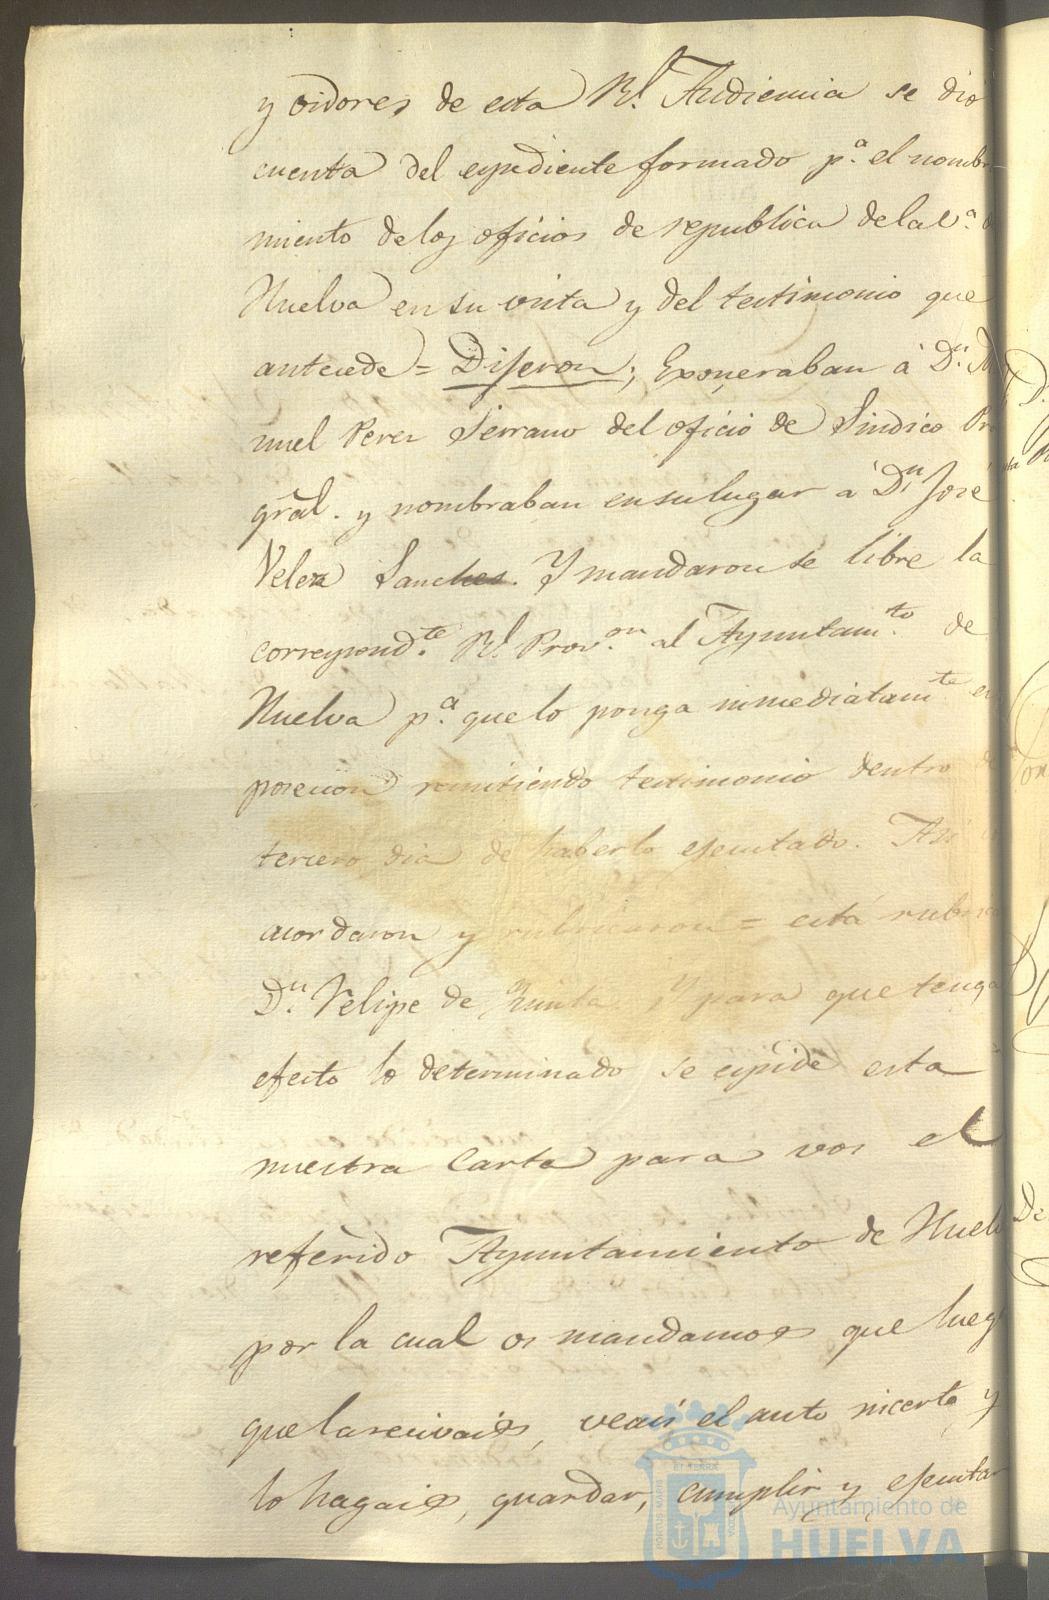 y oidores de esta Rl. Audiencia se dio
cuenta del expediente formado pa. el nombra
miento de los oficios de republica de la Va. d
Huelva en su vista y del testimonio que
antecede = Dijeron; Exoneraban á Dn. Ma
nuel Perez Serrano del oficio de Sindico Pr
gral. y nombraban en su lugar á Dn. Jose
Velez Sanches. Y mandaron se libre la
correspondte. Rl. Provon. al Ayuntamto. de
Huelva pa. que lo ponga inmediatamte en
posecion remitiendo testimonio dentro de
tercero dia de haberlo ejecutado. Asi
acordaron y rubricaron = está rubrica
Dn. Felipe de Y para que tenga
efecto lo determinado se expide esta
nuestra Carta para vos el
referido Ayuntamiento de Huelv
por la cual os mandamos que lueg
que la reciváis, veais el auto inserto y
lo hagais, guardar, cumplir y ejecutar
Ayuntamiento de
HUELVA